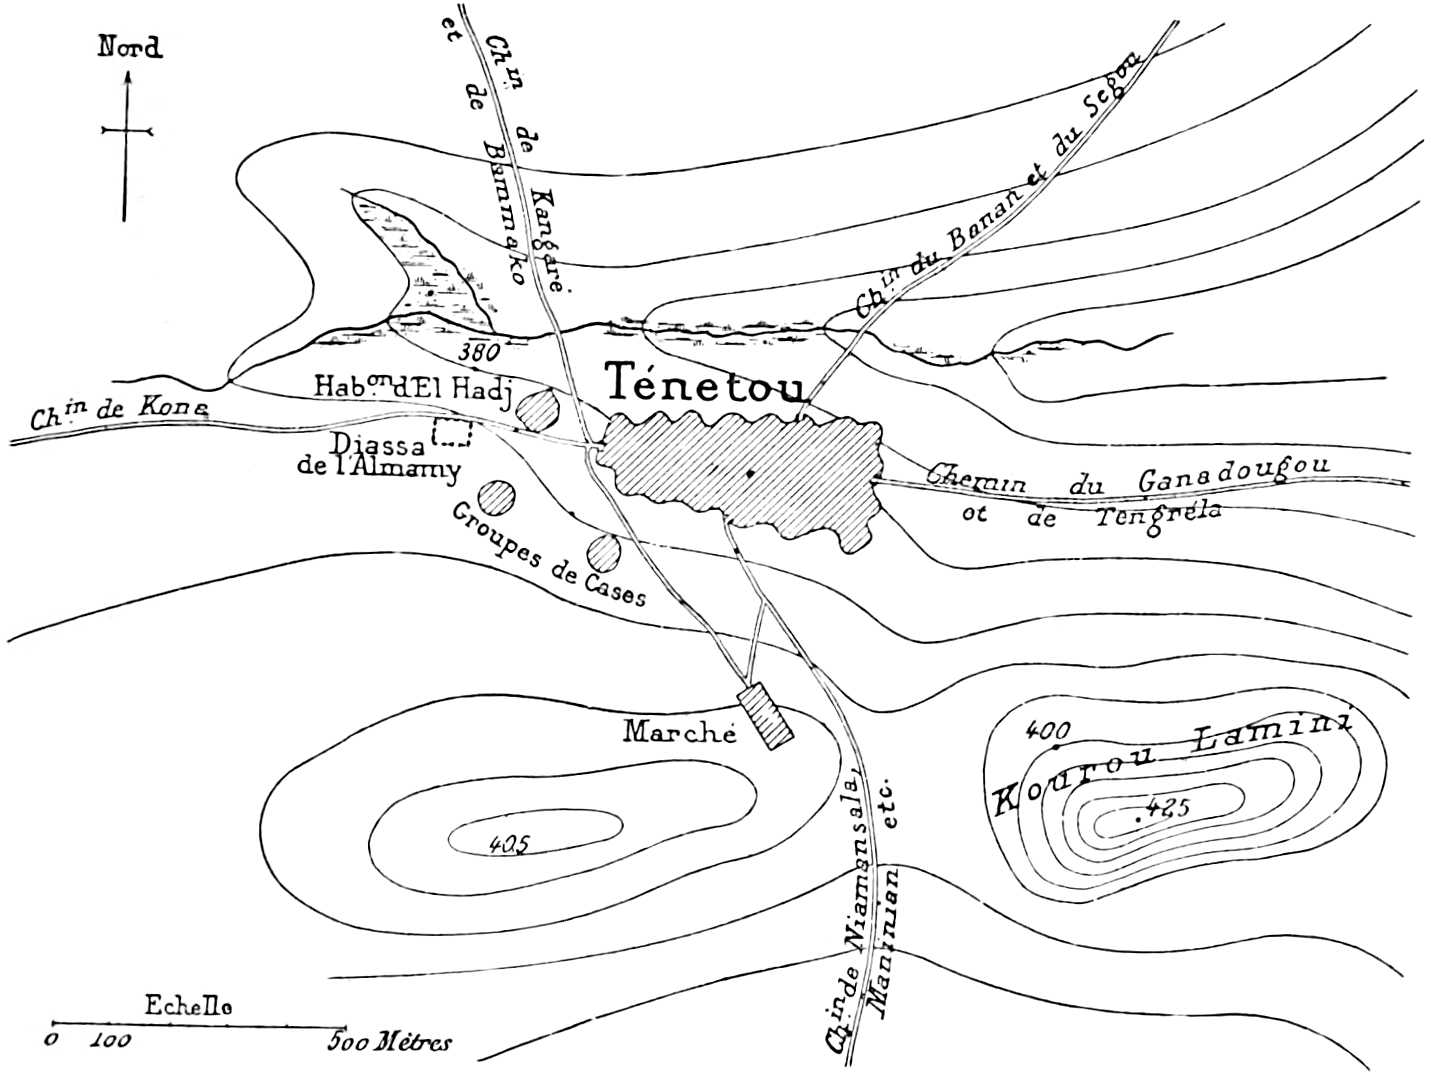 Nord
Ch.in de Kangaré
et de Bammako
Ch.in du Banan et du Ségou
380
Hab.on d'El Hadj
Ténetou
Ch.in de Kona
Diassa
de l'Almamy
Chemin du Ganadougou
et de Tengréla
Groupes de Cases
Marché
400
Kourou Lamini
425
405
Ch.in de Niamansala,
Maninian etc.
Echelle
0 100 500 Mètres